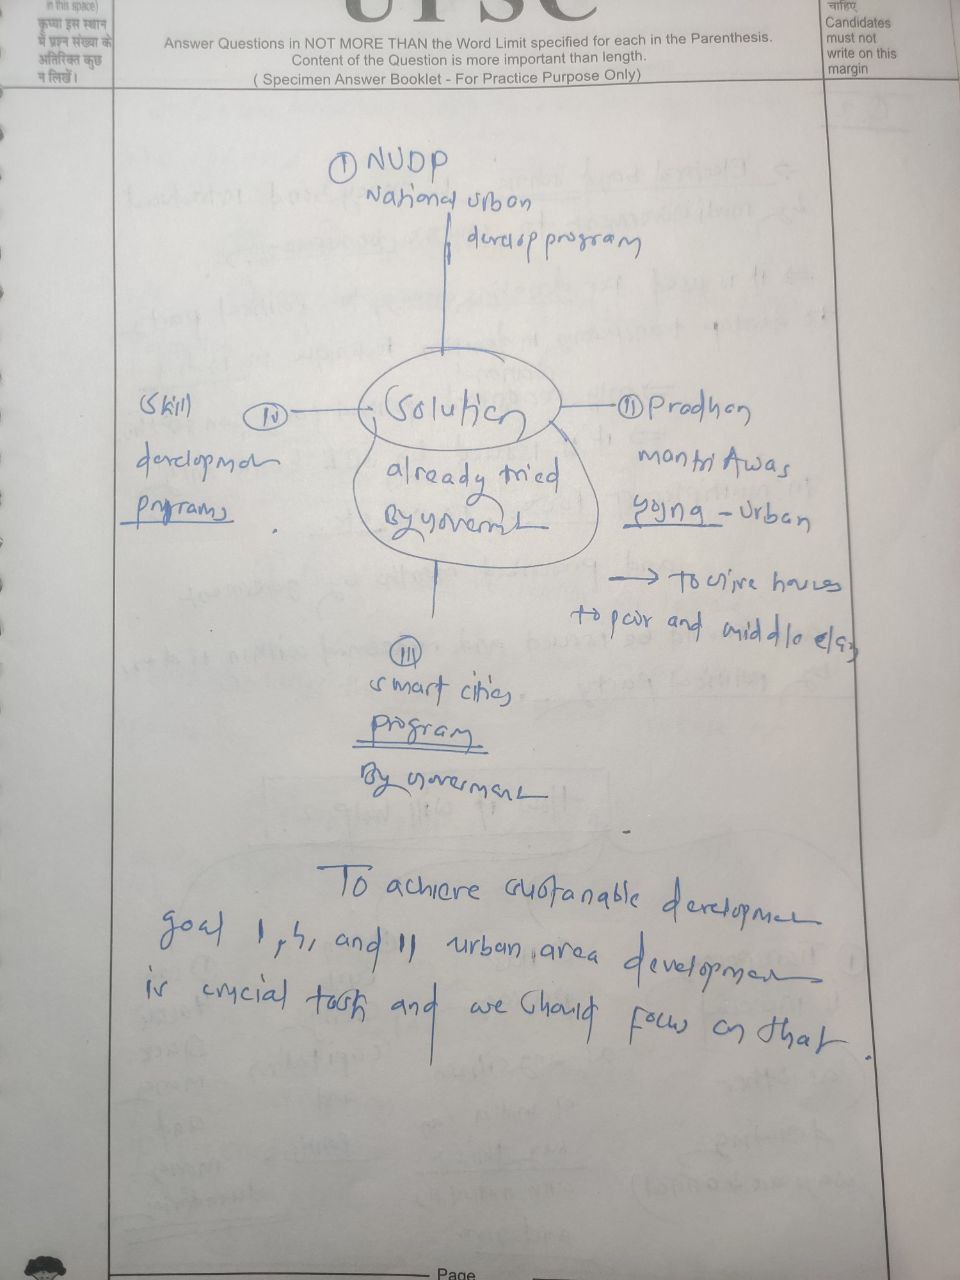 in this space)
कृप्या इस स्थान
में प्रश्न संख्या के
अतिरिक्त कुछ
न लिखें।
UPSC
Answer Questions in NOT MORE THAN the Word Limit specified for each in the Parenthesis.
Content of the Question is more important than length.
( Specimen Answer Booklet - For Practice Purpose Only)
चाहिए
Candidates
must not
write on this
margin
I NUDP
National urban
develop program
Solution
already tried
By goverment
II Pradhan
mantri Awas
yojna - Urban
→ to give houses
to poor and middle class
IV Skill
development
programs
III
smart cities
program
By goverment
To achieve sustanable development
goal 1, 5, and 11 urban area development
is crucial task and we should focus on that.
Page